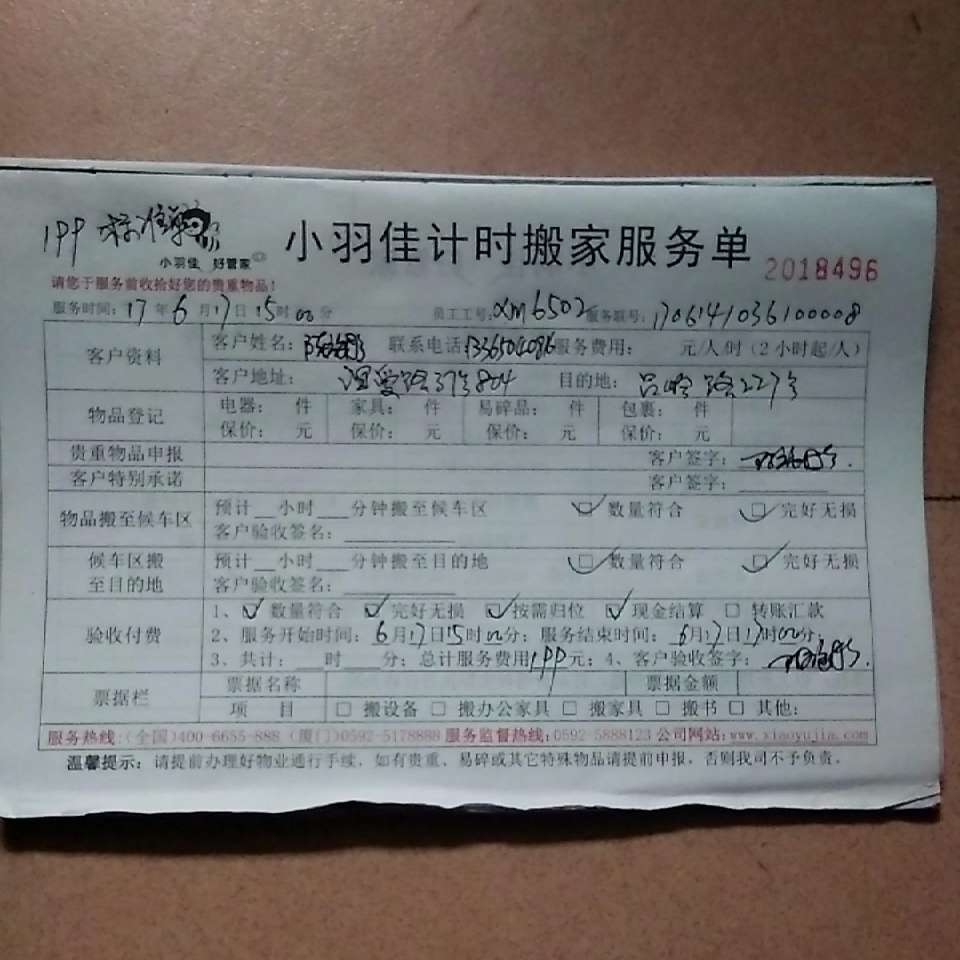 199 标准搬家
小羽佳 好管家
小羽佳计时搬家服务单
2018496
请您于服务前收拾好您的贵重物品!
服务时间: 17 年 6 月 17 日 15 时 00 分 员工工号: xm6502 服务联号: 1706141036100008
客户资料 客户姓名: 联系电话: 服务费用: 元/人/时 (2小时起/人)
客户地址: 路37号804 目的地: 吕岭路227号
物品登记 电器: 件 家具: 件 易碎品: 件 包裹: 件
保价: 元 保价: 元 保价: 元 保价: 元
贵重物品申报 客户签字:
客户特别承诺 客户签字:
物品搬至候车区 预计__小时___分钟搬至候车区 ☑ 数量符合 ☑ 完好无损
客户验收签名:
候车区搬至目的地 预计__小时___分钟搬至目的地 ☑ 数量符合 ☑ 完好无损
客户验收签名:
验收付费 1、☑ 数量符合 ☑ 完好无损 ☑ 按需归位 ☑ 现金结算 □ 转账汇款
2、服务开始时间: 6月17日15时00分; 服务结束时间: 6月17日17时00分;
3、共计: ___时___分; 总计服务费用199元; 4、客户验收签字:
票据栏 票据名称 票据金额
项 目 □ 搬设备 □ 搬办公家具 □ 搬家具 □ 搬书 □ 其他:
服务热线:(全国)400-6655-888 (厦门)0592-5178888 服务监督热线:0592-5888123 公司网站:www.xiaoyujia.com
温馨提示: 请提前办理好物业通行手续, 如有贵重、易碎或其它特殊物品请提前申报, 否则我司不予负责。